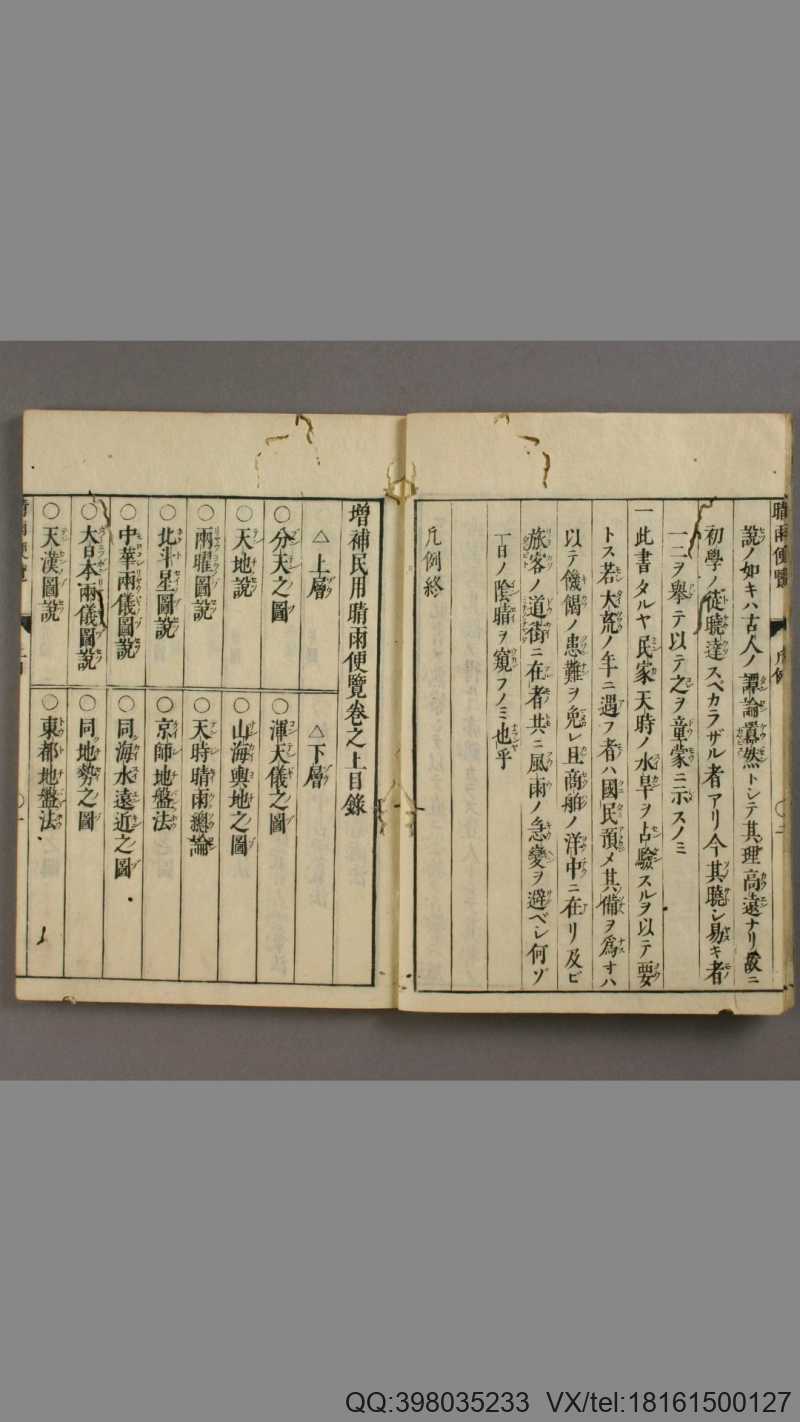 晴雨便覽
凡例
説ノ如キハ古人ノ譚論囂然トシテ其理高遠ナリ故ニ
初學ノ徒曉達スベカラザル者アリ今其曉シ易キ者
一二ヲ舉テ以テ之ヲ童蒙ニ示スノミ
一此書タルヤ民家天時ノ水旱ヲ占驗スルヲ以テ要
トス若大荒ノ年ニ遇フ者ハ國民預メ其備ヲ爲サハ
以テ饑餲ノ患難ヲ免レ且商舶ノ洋中ニ在リ及ビ
旅客ノ道街ニ在者共ニ風雨ノ急變ヲ避ベシ何ゾ
一日ノ陰晴ヲ窺フノミ也乎
凡例終
增補民用晴雨便覽卷之上目錄
△上層
△下層
○分天之圖
○渾天儀之圖
○天地說
○山海輿地之圖
○兩曜圖說
○天時晴雨總論
○北斗星圖說
○京師地盤法
○中華兩儀圖說
○同海水遠近之圖
○大日本兩儀圖說
○同地勢之圖
○天漢圖說
○東都地盤法
QQ:398035233 VX/tel:18161500127